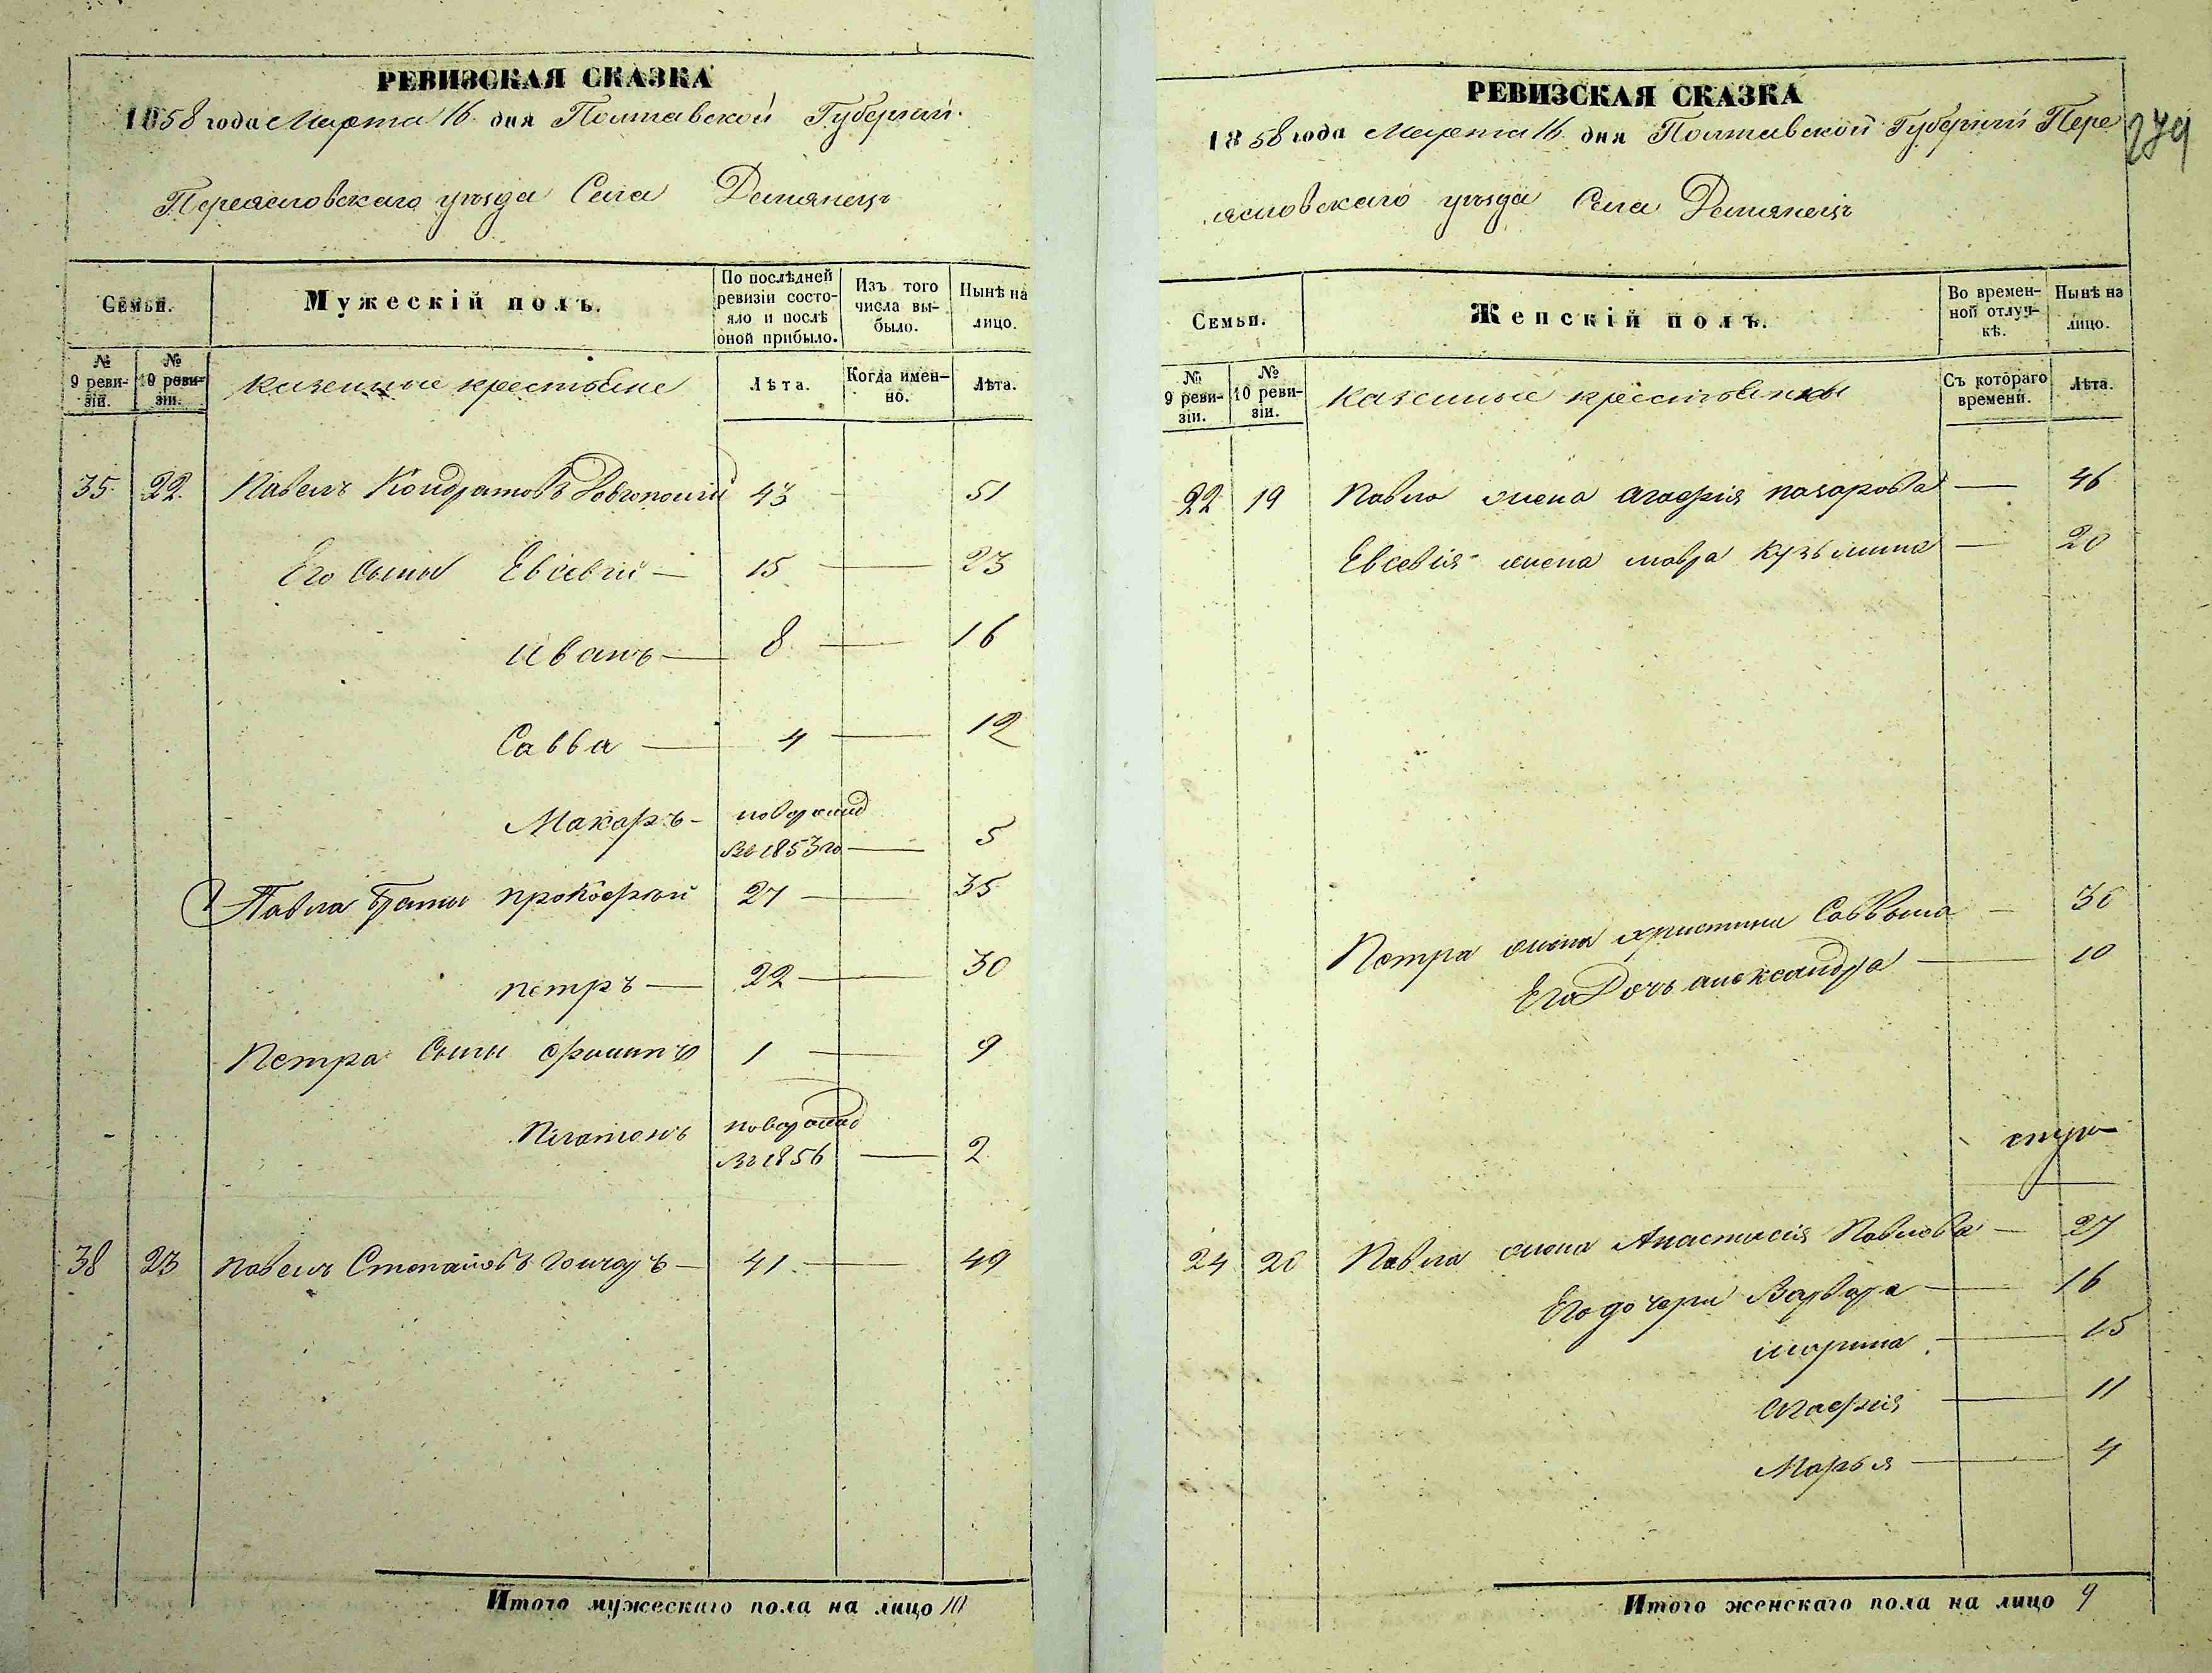 РЕВИЗСКАЯ СКАЗКА
1858 года Марта 16 дня Полтавской Губернии
Переясловскаго уезда Села Демянецъ
Семьи.
Мужескій полъ.
По послѣдней ревизіи состояло и послѣ оной прибыло.
Изъ того числа выбыло.
Нынѣ на лицо.
№ 9 ревизіи.
№ 10 ревизіи.
казенные крестьяне
Лѣта.
Когда именно.
Лѣта.
35 22 Павелъ Кондратовъ 43 51
Его сыны Евсевій — 15 — 23
Иванъ — 8 — 16
Савва — 4 — 12
Макаръ — новорожд
въ 1853 го — 5
Павла братья Прокофтій 27 — 35
Петръ — 22 — 30
Петра сыны Филипъ 1 — 9
Платонъ новорожд
въ 1856 — 2
38 23 Павелъ Степановъ Гончаръ — 41 — 49
Итого мужескаго пола на лицо 10
РЕВИЗСКАЯ СКАЗКА
279
1858 года Марта 16 дня Полтавской Губерніи Пере
ясловскаго уезда Села Демянецъ
Семьи.
Женскій полъ.
Во временной отлучкѣ.
Нынѣ на лицо.
№ 9 ревизіи.
№ 10 ревизіи.
казенные крестьянки
Съ котораго времени.
Лѣта.
22 19 Павла жена Агафія Назарова — 46
Евсевія жена Мавра Кузьмина — 20
Петра жена Христина Саввына — 30
Его Дочь Александра — 10
24 20 Павла жена Анастасія Павлова — 27
Его дочери Варвара — 16
Марина — 15
Агафія — 11
Марья — 4
Итого женскаго пола на лицо 9